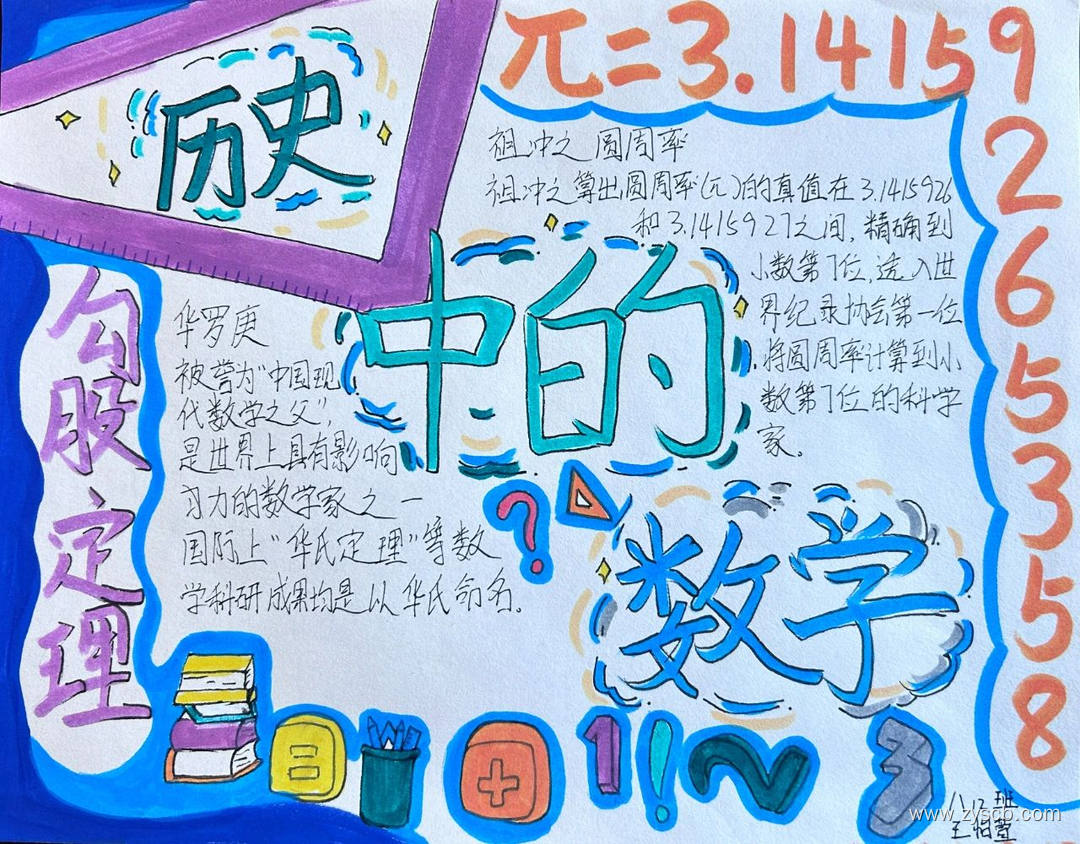 π=3.14159
265358
历史
中的
数学
勾股定理
祖冲之圆周率
祖冲之算出圆周率(π)的真值在3.1415926
和3.1415927之间,精确到
小数第7位,选入世
界纪录协会第一位
将圆周率计算到小
数第7位的科学
家。
华罗庚
被誉为"中国现
代数学之父",
是世界上具有影响
力的数学家之一
国际上"华氏定理"等数
学科研成果均是以华氏命名。
?
=
+
1!~3
八12班
www.zyscb.com